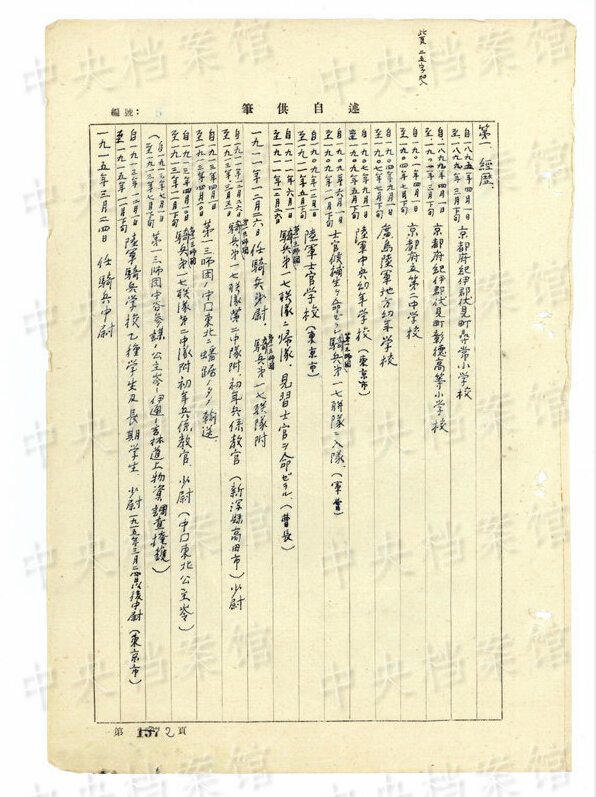 此頁二五字加入
筆供自述
編號:
第一、經歷.
自一八九五年四月一日
至一八九九年三月下旬
京都府紀伊郡伏見町尋常小学校
自一八九九年四月一日
至一九〇一年三月下旬
京都府紀伊郡伏見町彰德高等小学校
自一九〇一年四月一日
至一九〇四年七月下旬
京都府立第二中学校
自一九〇四年九月一日
至一九〇七年七月下旬
廣島陸軍地方幼年学校
自一九〇七年九月一日
至一九〇九年五月下旬
陸軍中央幼年学校(東京市)
自一九〇九年六月一日
士官候補生ヲ命ゼラレ第一三師團騎兵第一七聯隊ニ入隊.(軍曹)
自一九〇九年一二月一日
至一九一一年五月下旬
陸軍士官学校(東京市)
自一九一一年六月一日
至一九一一年一二月二六日
第一三師團騎兵第一七聯隊ニ歸隊.見習士官ヲ命ゼラル.(曹長)
一九一一年一二月二六日 任騎兵少尉 第一三師團騎兵第一七聯隊附
自一九一一年一二月二六日
至一九一三年三月三一日
第一三師團騎兵第一七聯隊第二中隊附.初年兵係教官(新潟縣高田市)少尉
自一九一三年四月一日
第一三師團ノ中口東北ニ蟠踞ノタメ輸送.
自一九一三年四月
至一九一三年一一月下旬
第一三師團騎兵第一七聯隊第二中隊附初年兵係教官.少尉(中口東北公主岺)
(自一九一三年七月一日
至一九一三年七月下旬
第一三師団中谷參謀ノ公主岺—伊通—吉林道上物資調査掩護)
自一九一三年一二月一日
至一九一五年一一月下旬
陸軍騎兵学校乙種学生及長期学生.少尉一九一五年三月二四日以後中尉(東京市)
一九一五年三月二四日 任騎兵中尉
第1372頁
中央档案馆